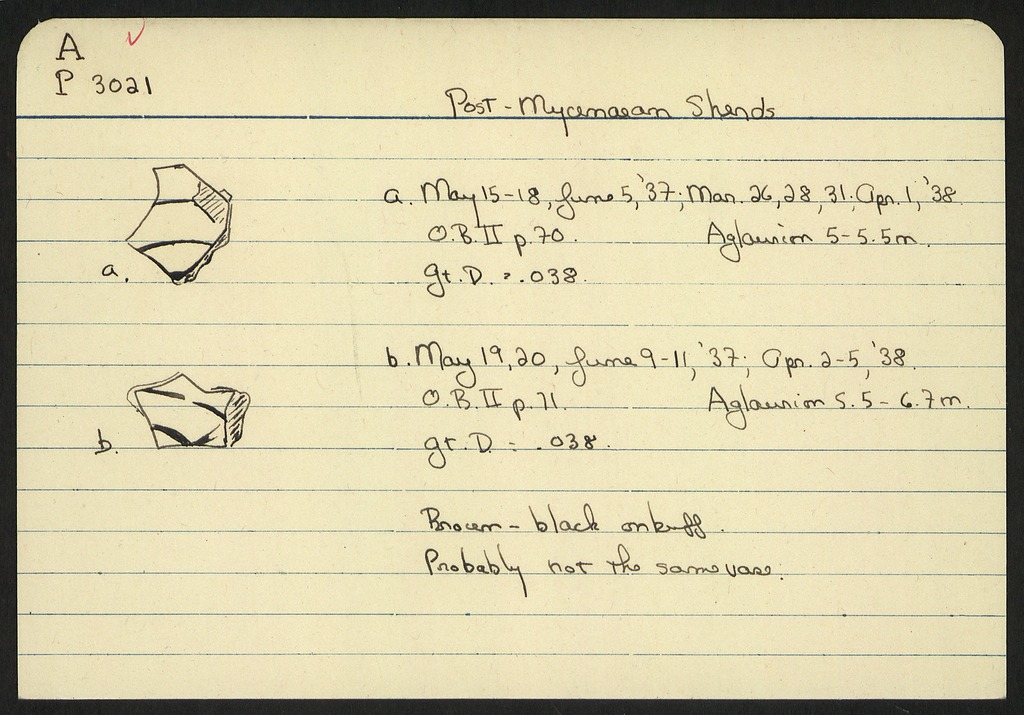 A
P 3021
Post-Mycenaean Sherds
a. May 15-18, June 5, '37; Mar. 26, 28, 31. Apr. 1, '38.
O.B. II p. 70. Aglaurion 5-5.5m.
gt. D. = .038.
a.
b. May 19, 20, June 9-11, '37; Apr. 2-5, '38.
O.B. II p. 71. Aglaurion 5.5-6.7m.
gt. D. = .038.
b.
Brown-black on buff.
Probably not the same vase.